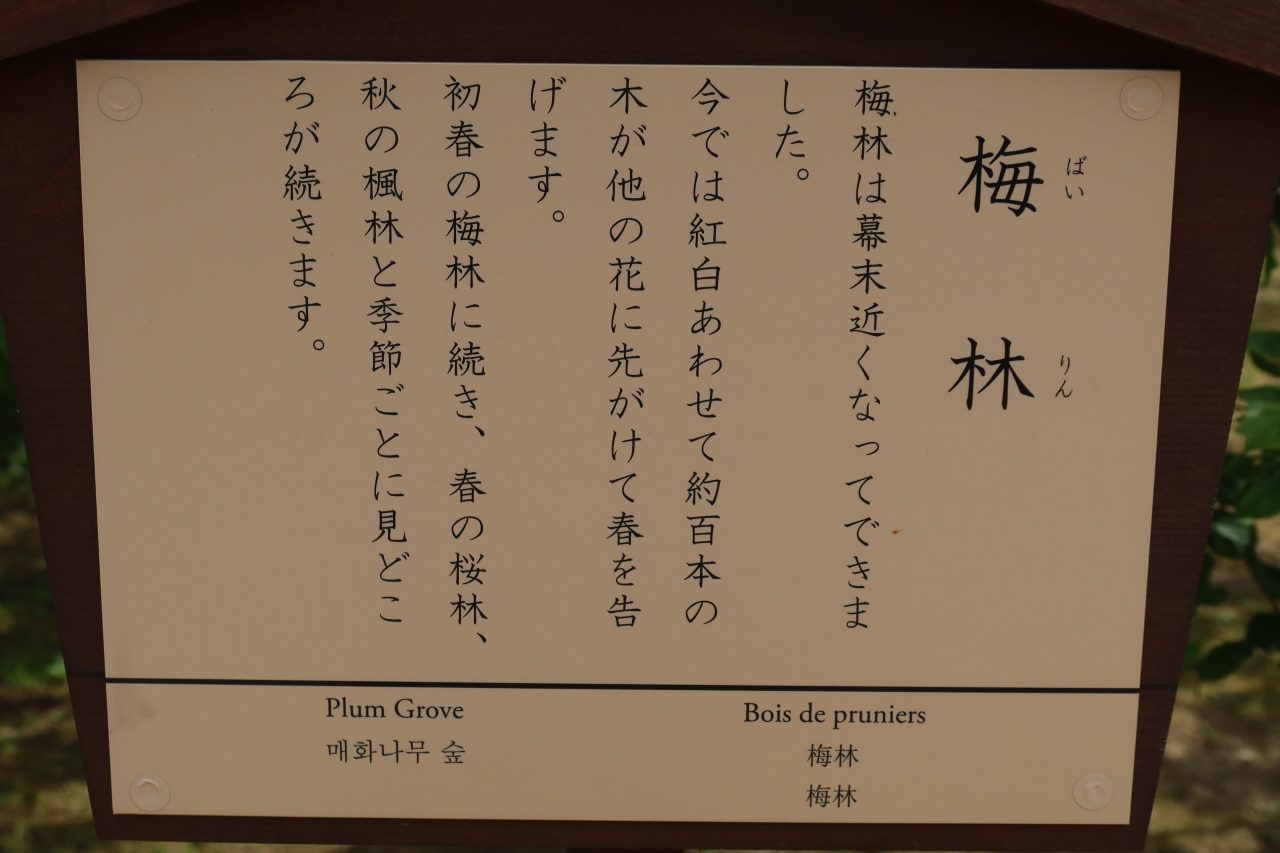 梅林
ばいりん
梅林は幕末近くなってできま
した。
今では紅白あわせて約百本の
木が他の花に先がけて春を告
げます。
初春の梅林に続き、春の桜林、
秋の楓林と季節ごとに見どこ
ろが続きます。
Plum Grove
매화나무 숲
Bois de pruniers
梅林
梅林